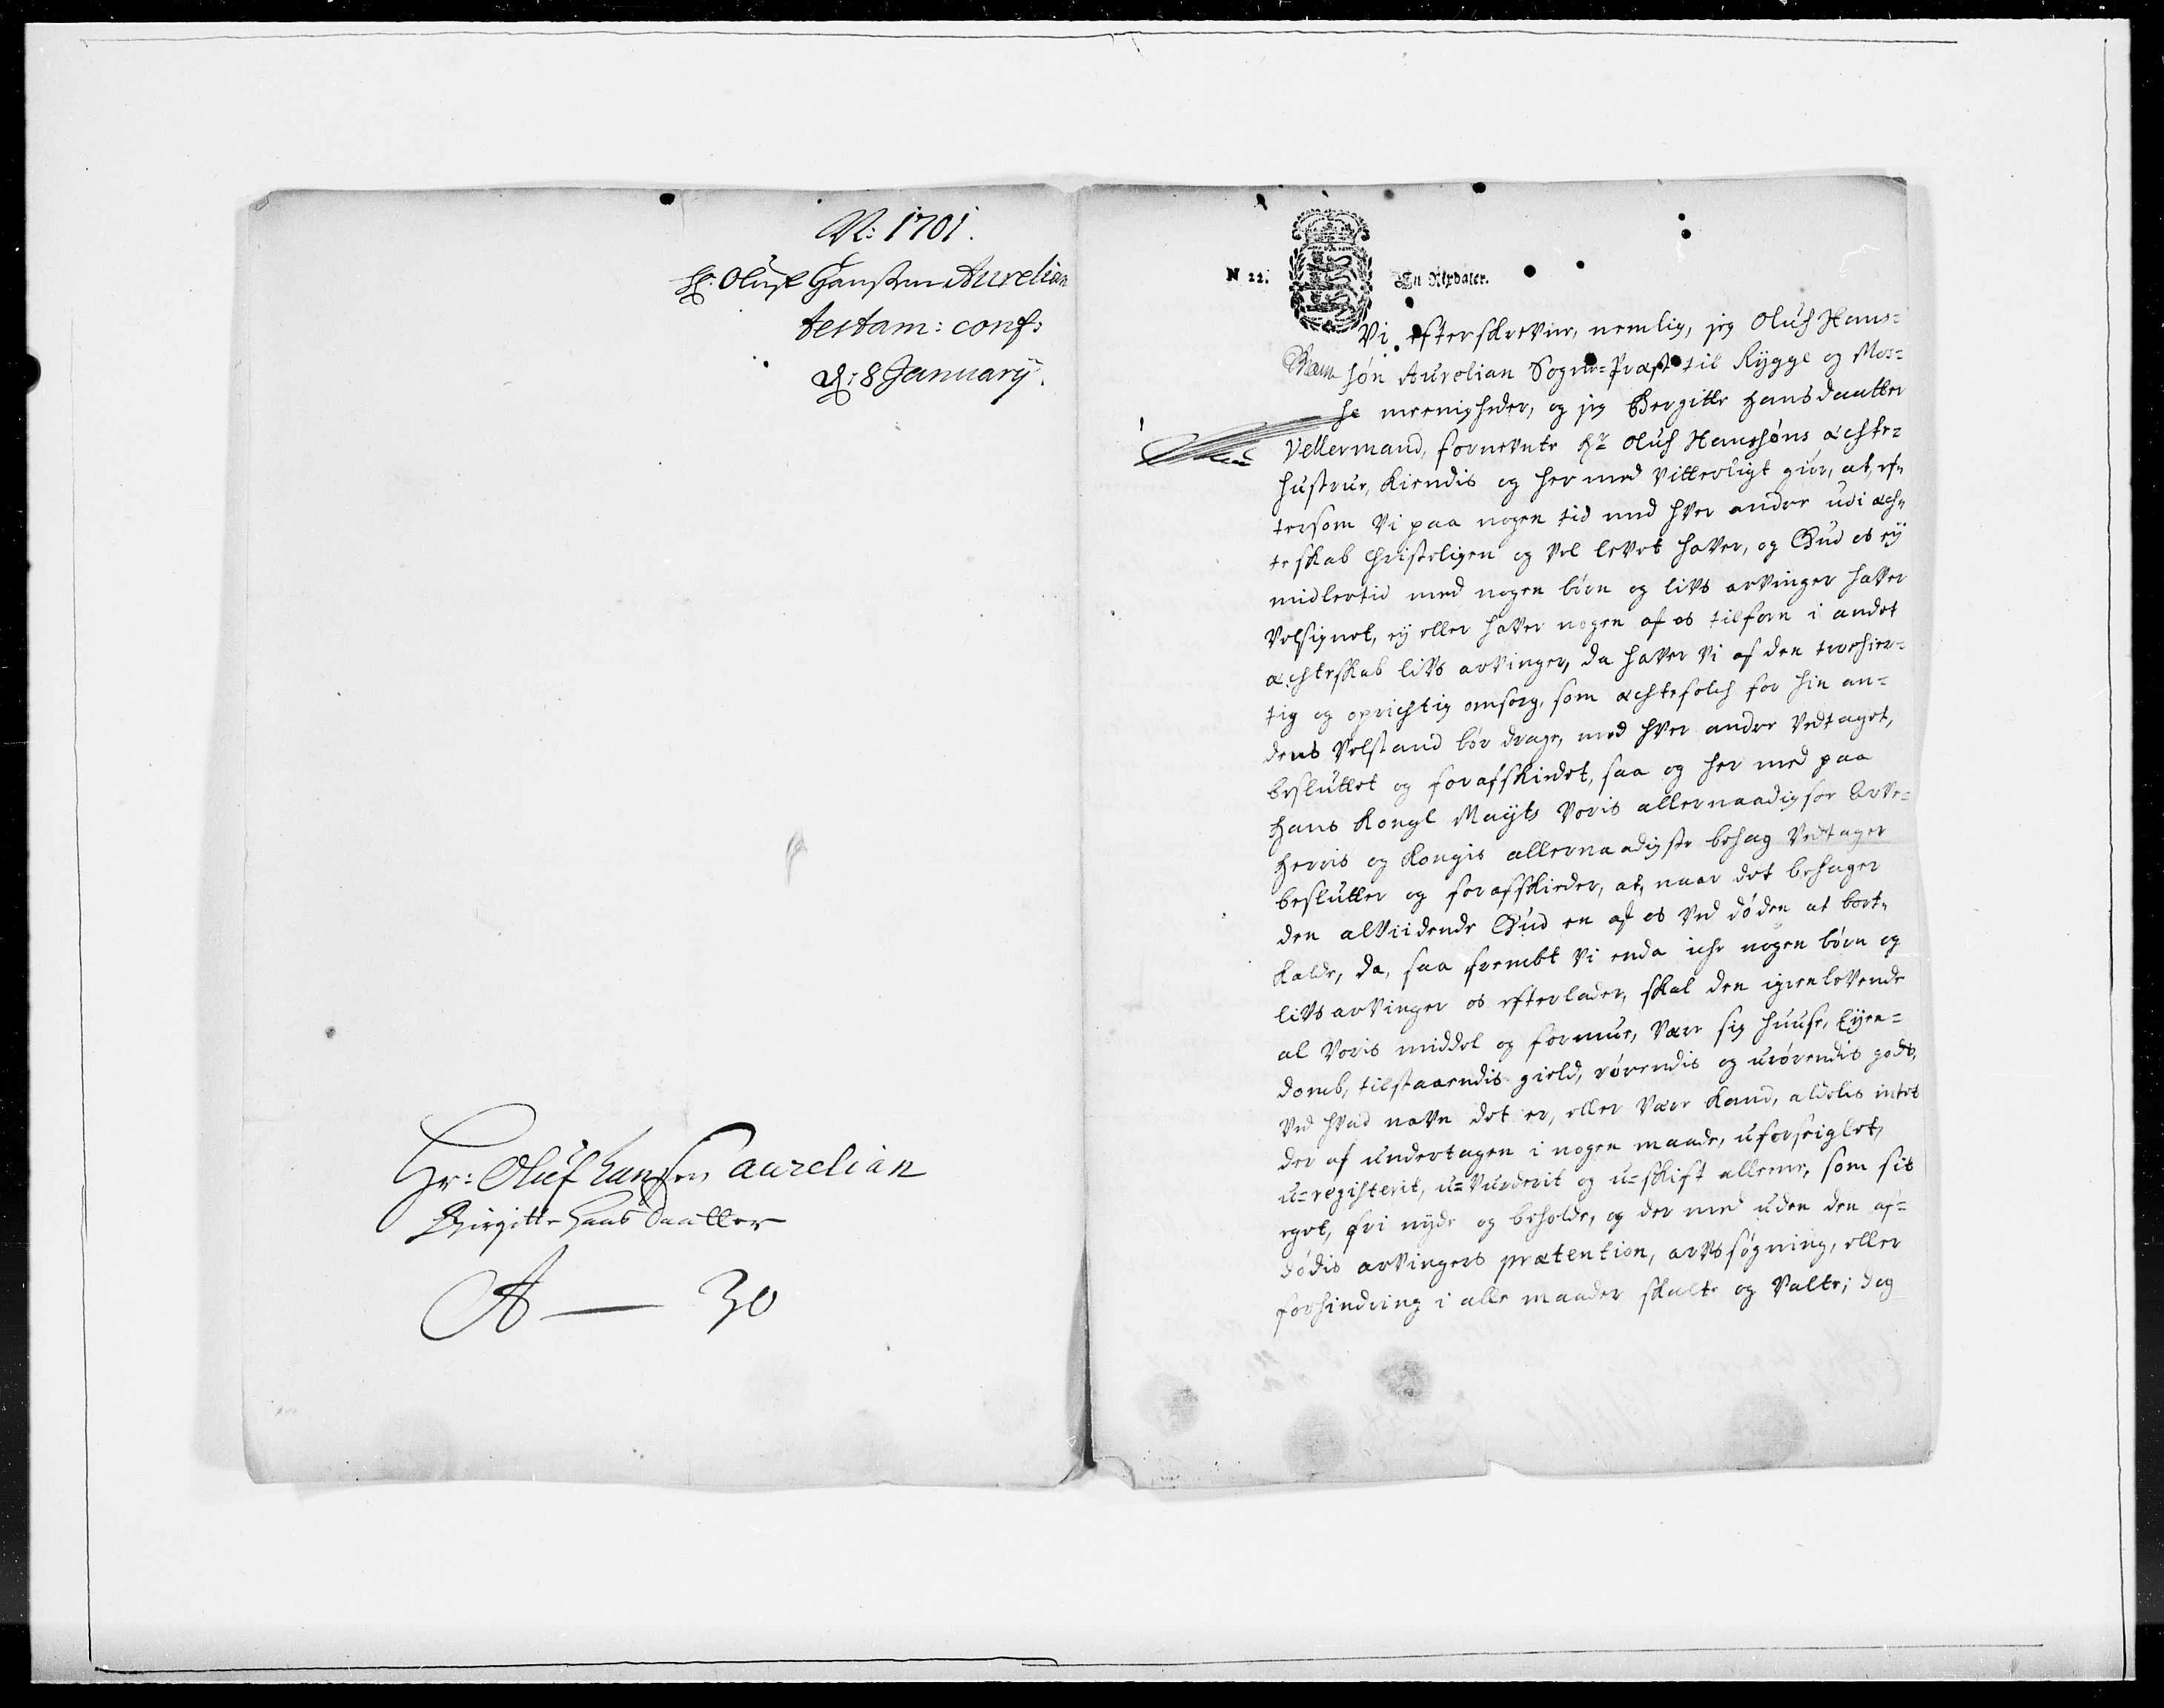 N: 1701.
Hr. Oluf Hanssen Aurelian
testam: conf:
d: 8 January.
Hr: Oluf hanssen aurelian
Birgitte Hans Daatter
A — 30
N 22.
En Rixdaler.
Vi efterskrevne, nemlig, jeg Oluf Hans-
søn Aurelian Sogne-Præst til Rygge og Mos-
se meenigheder, og jeg Bergitte Hansdaatter
Vellermand, fornevnte Hr Oluf Hanssøns ächte-
hustrue, Kiendis og her med vitterligt giør, at, ef-
tersom vi paa nogen tid med hver andre udi äch-
teskab christeligen og vel levet haver, og Gud os ey
midlertid med nogen børn og livs arvinger haver
velsignet, ey eller haver nogen af os tilforn i andet
ächteskab livs arvinger, da haver vi af den troehier-
tig og oprichtig omsorg, som ächtefolch for hin an-
dens velstand bør drage, med hver andre vedtaget,
besluttet og forafskiedet, saa og her med paa
Hans Kongl Mayts voris allernaadigste Arve-
Herris og Kongis allernaadigste behag vedtager
beslutter og forafskieder, at, naar det behager
den alviidende Gud en af os ved døden at bort-
kalde, da, saa frembt vi enda iche nogen børn og
livs arvinger os efterlader, skal den igienlevende
al voris middel og formue, være sig huuse, Eyen-
domb, tilstaaendis gield, rørendis og urørendis gods,
ved hvad navn det er, eller være kand, aldelis intet
der af undertagen i nogen maade, uforseiglet,
u-registerit, u-vurderit og u-skift allene, som sit
eget, fri nyde og beholde, og der med uden den af-
dødis arvingers prætention, arvs søgning, eller
forhindring i alle maader skalte og valte; dog